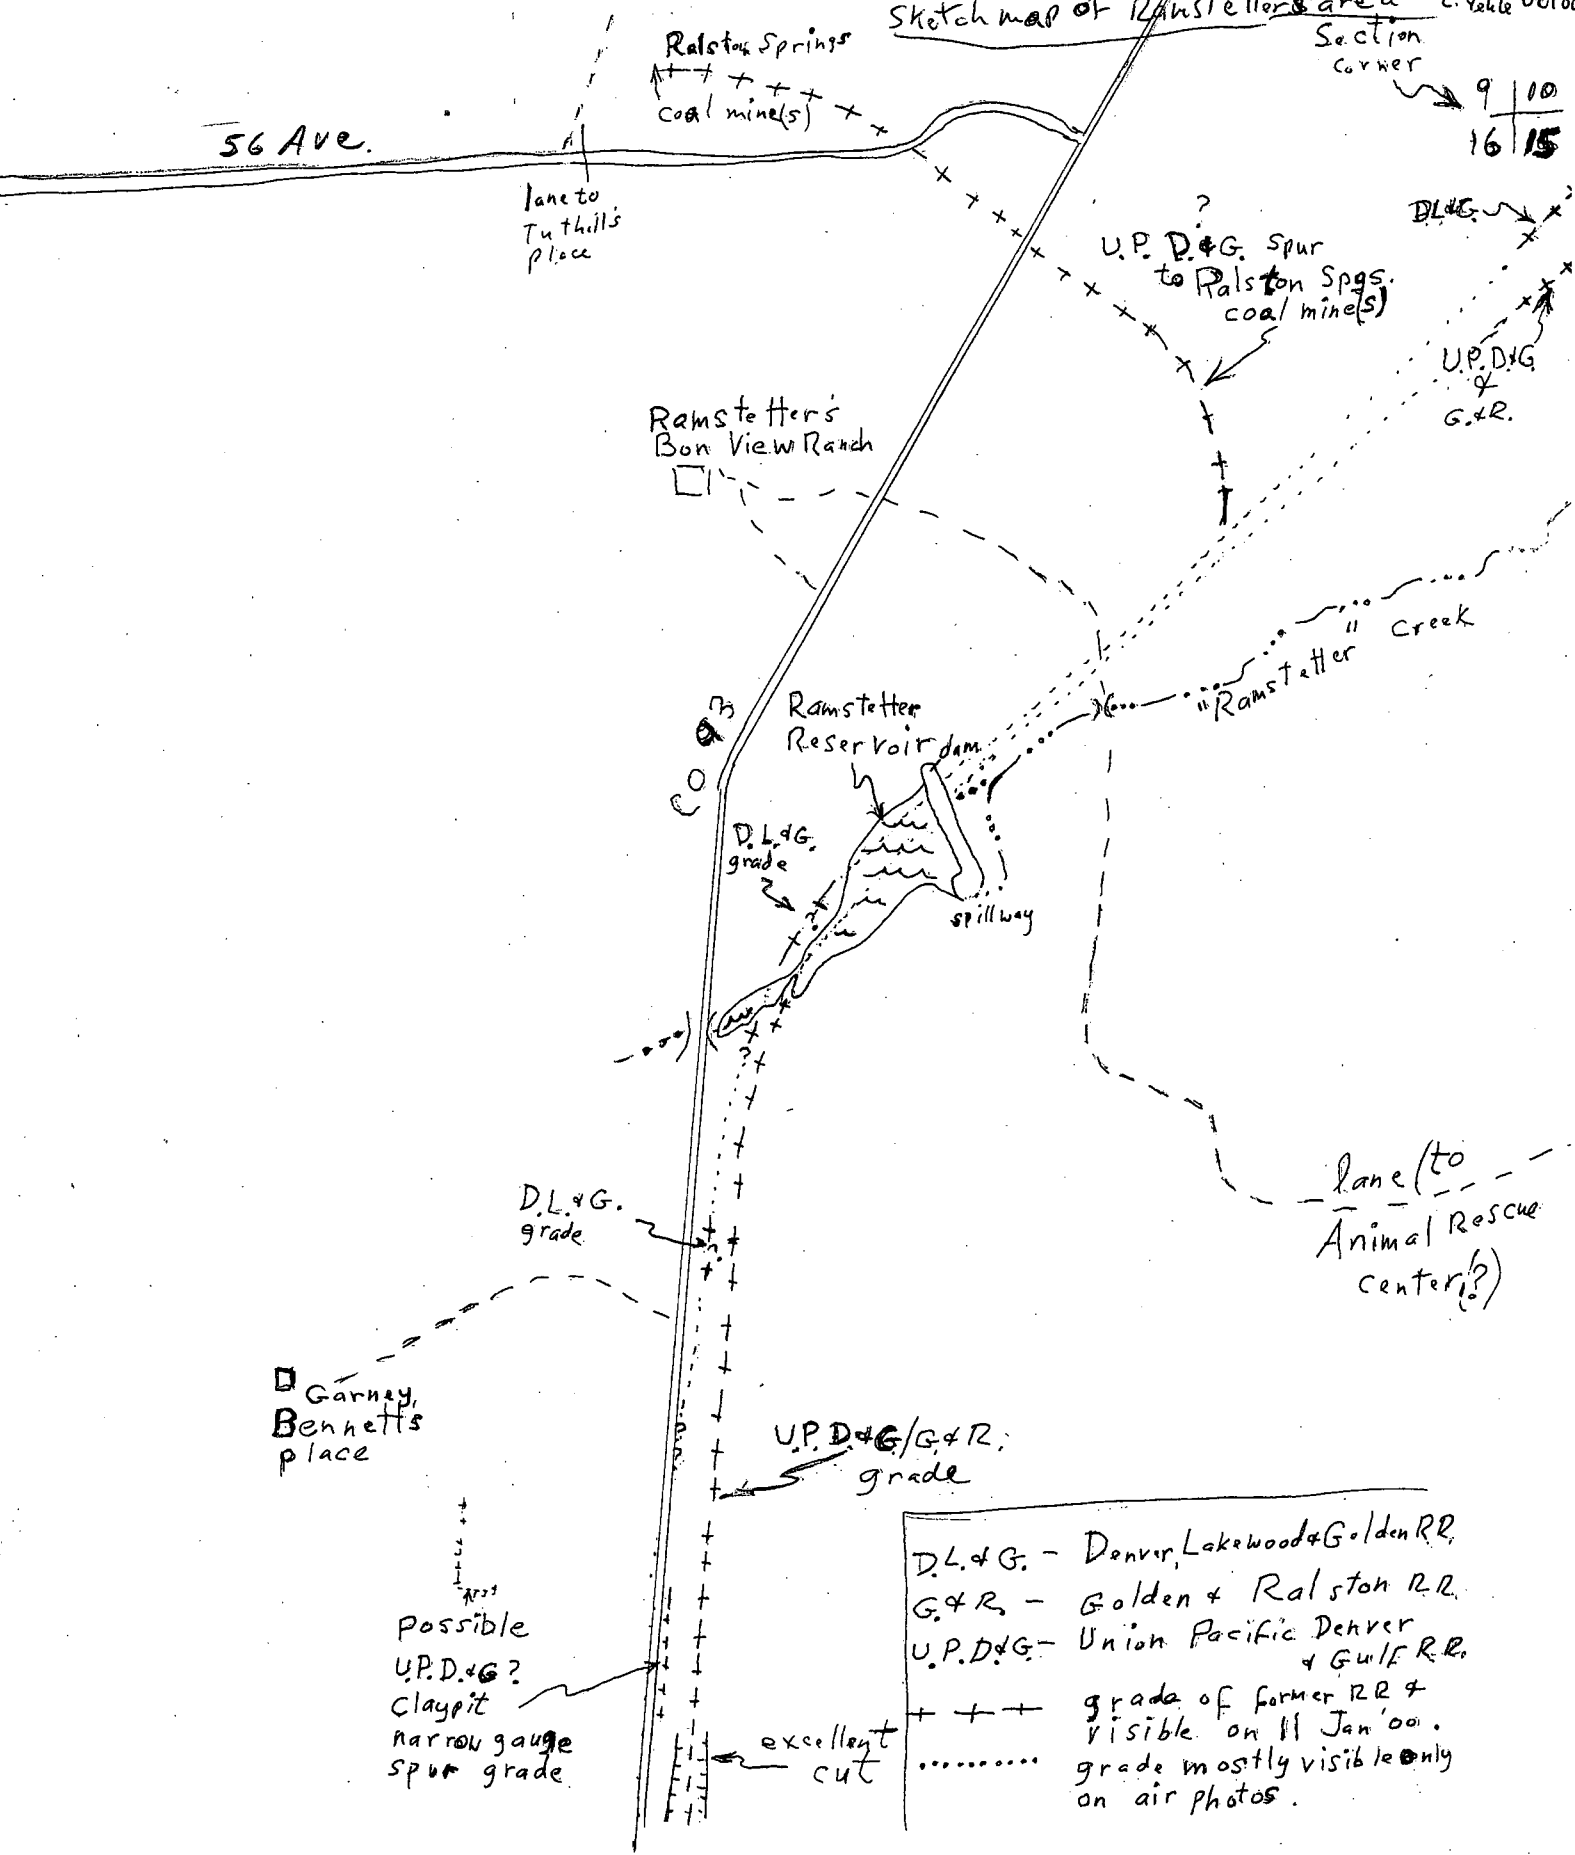 Sketch map of Ramstetters area
Section
corner
9 10
16 15
Ralston Springs
coal mine(s)
56 Ave.
lane to
Tuthill's
place
D.L.&G.
?
U.P. D.&G. Spur
to Ralston Spgs.
coal mine(s)
U.P.D.&G.
&
G.&R.
Ramstetter's
Bon View Ranch
"Ramstetter" Creek
CO 93
Ramstetter
Reservoir
dam
D.L.&G.
grade
?
spillway
?
D.L.&G.
grade
?
lane (to
Animal Rescue
center!?)
Garney,
Bennett's
place
U.P. D.&G/G.&R.
grade
possible
U.P.D.&G?
Claypit
narrow gauge
spur grade
excellent
cut
D.L.&G. - Denver, Lakewood & Golden RR.
G.&R. - Golden & Ralston RR.
U.P.D.&G. - Union Pacific Denver
& Gulf R.R.
grade of former RR &
visible on 11 Jan '00.
grade mostly visible only
on air photos.